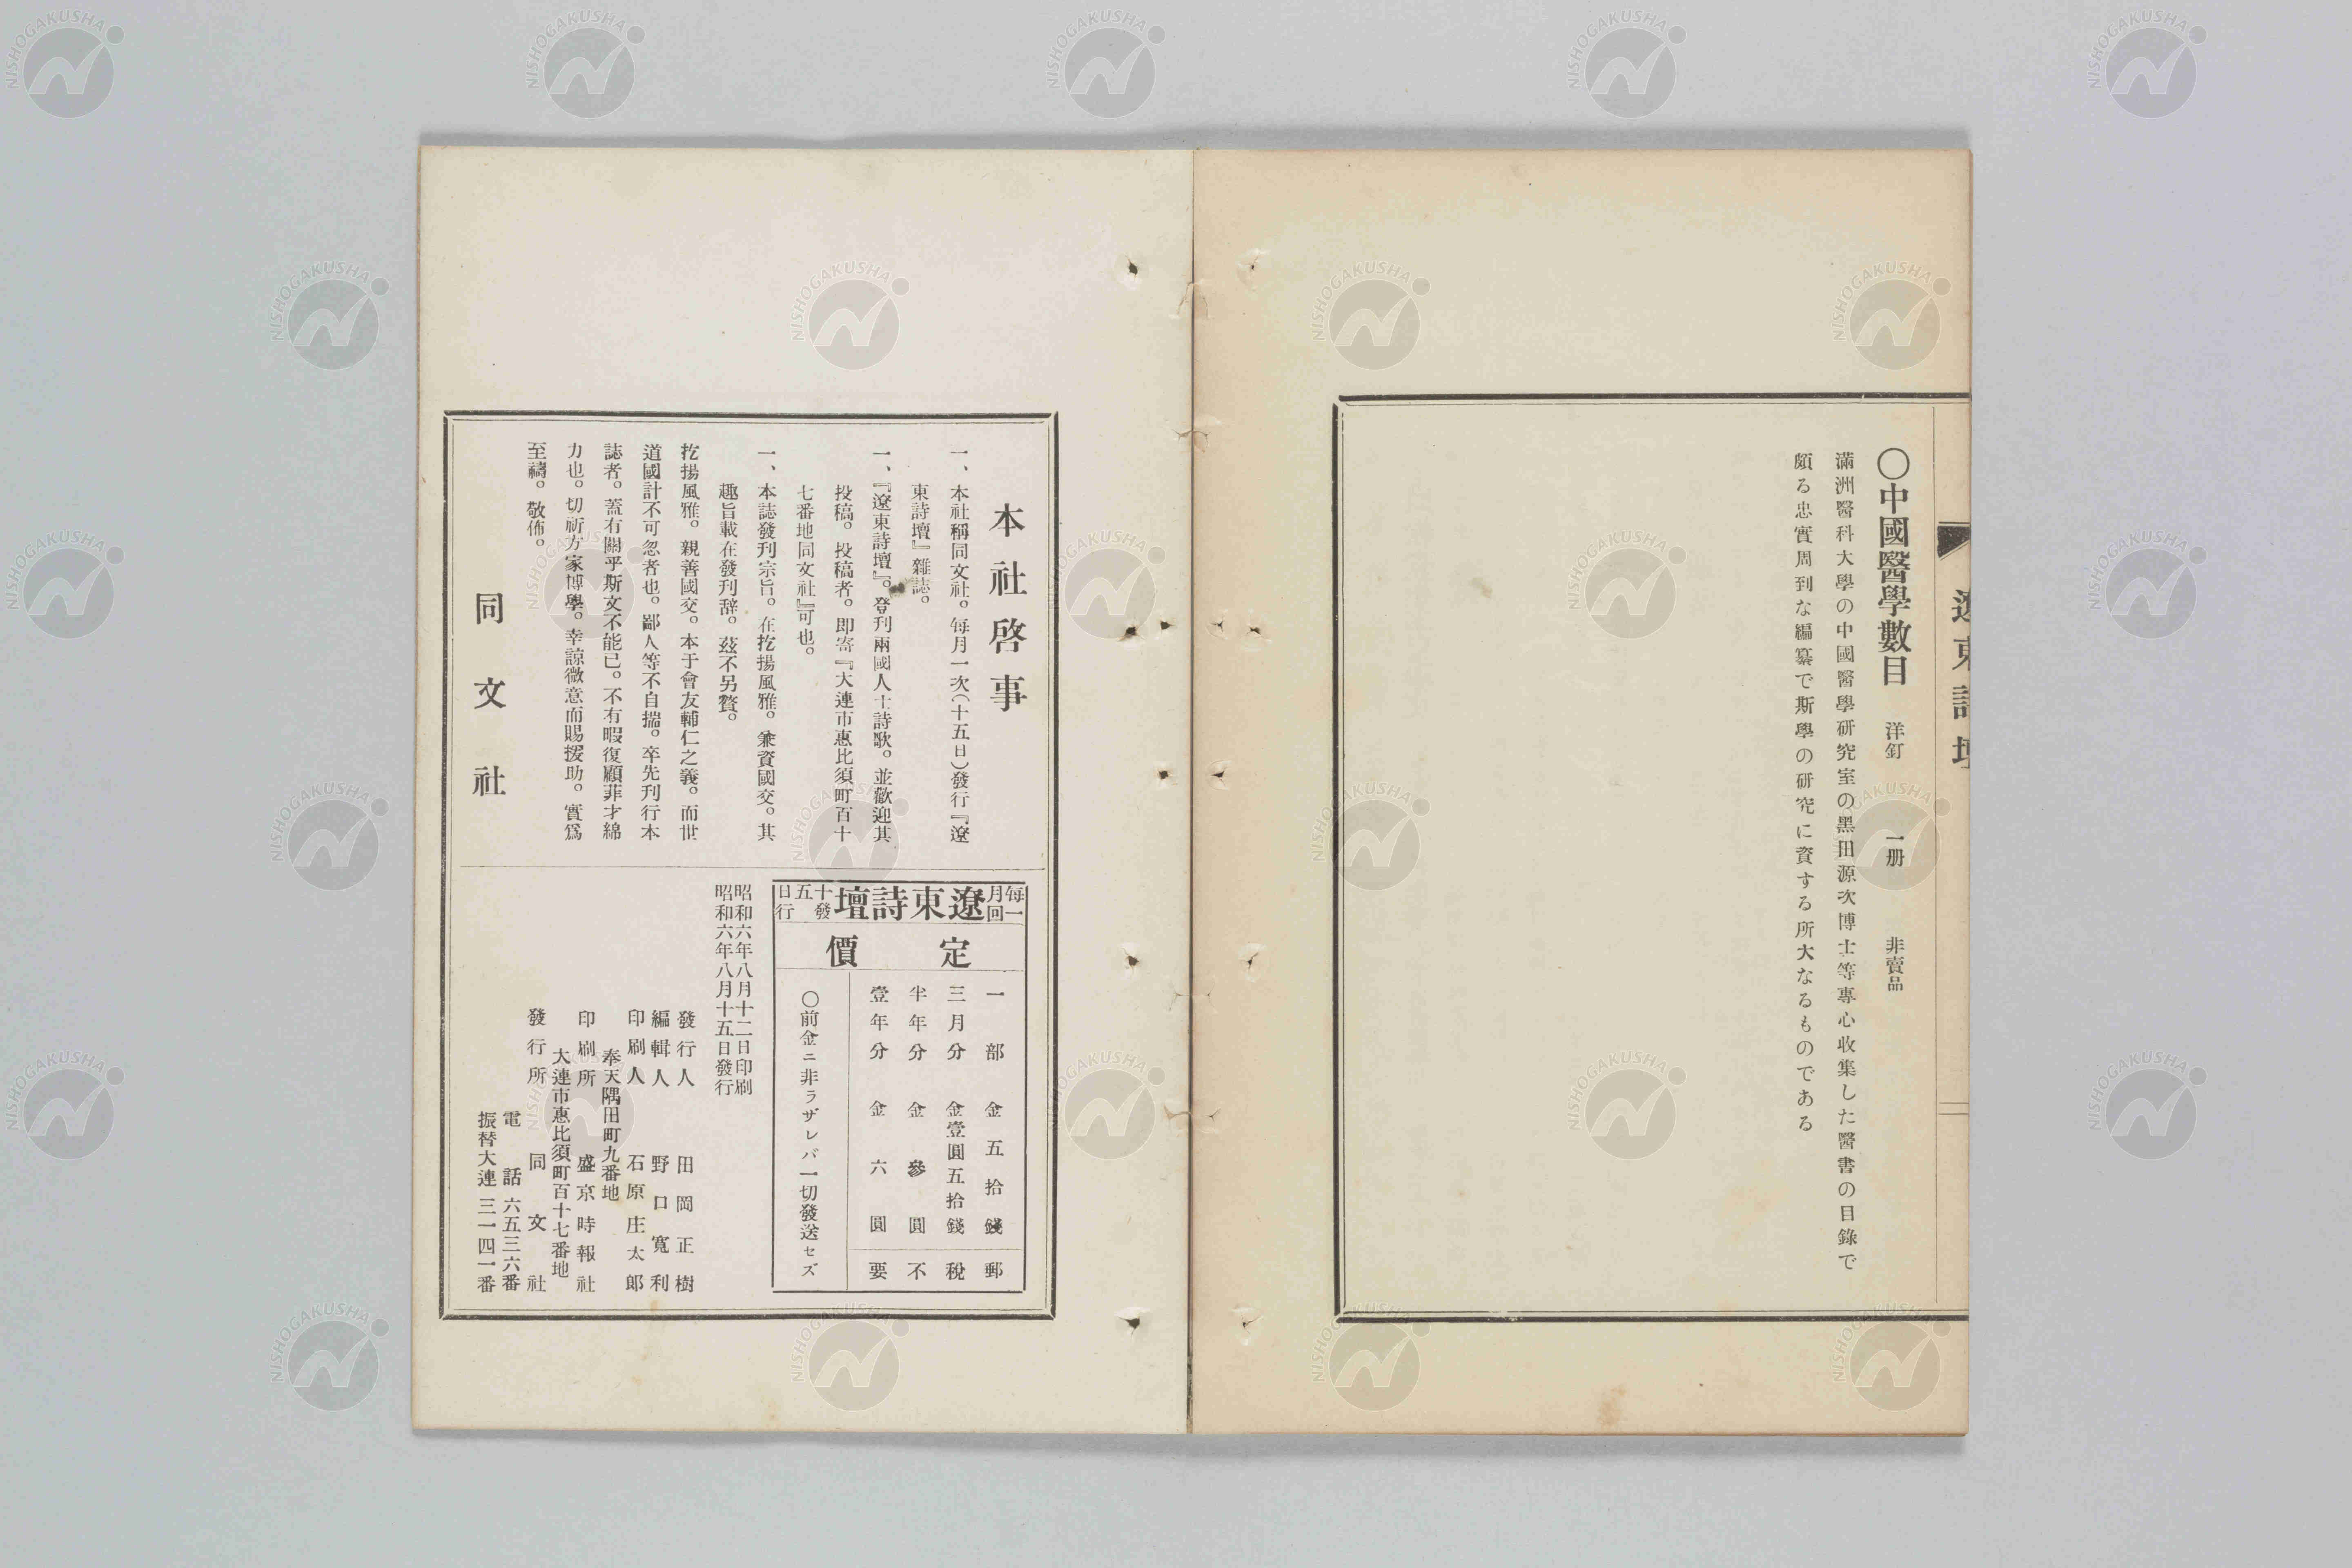 遼東詩壇
〇中國醫學數目　洋釘　一册　非賣品
滿洲醫科大學の中國醫學研究室の黑田源次博士等專心收集した醫書の目錄で
頗る忠實周到な編纂で斯學の研究に資する所大なるものである
本社啓事
一、本社稱同文社。每月一次(十五日)發行『遼
東詩壇』雜誌。
一、『遼東詩壇』。登刊兩國人士詩歌。並歡迎其
投稿。投稿者。即寄『大連市惠比須町百十
七番地同文社』可也。
一、本誌發刊宗旨。在挖揚風雅。兼資國交。其
趣旨載在發刊辞。玆不另贅。
挖揚風雅。親善國交。本于會友輔仁之義。而世
道國計不可忽者也。鄙人等不自揣。卒先刊行本
誌者。蓋有關乎斯文不能已。不有暇復顧菲才綿
力也。切祈方家博學。幸諒微意而賜援助。實爲
至禱。敬佈。
同文社
每月一回
遼東詩壇
十五日發行
定價
一部　金五拾錢　郵
三月分　金壹圓五拾錢　稅
半年分　金參圓　不
壹年分　金六圓　要
〇前金ニ非ラザレバ一切發送セズ
昭和六年八月十二日印刷
昭和六年八月十五日發行
發行人　田岡正樹
編輯人　野口寬利
印刷人　石原庄太郎
奉天隅田町九番地
印刷所　盛京時報社
大連市惠比須町百十七番地
發行所　同文社
電話六五三六番
振替大連三一四一番
NISHOGAKUSHA